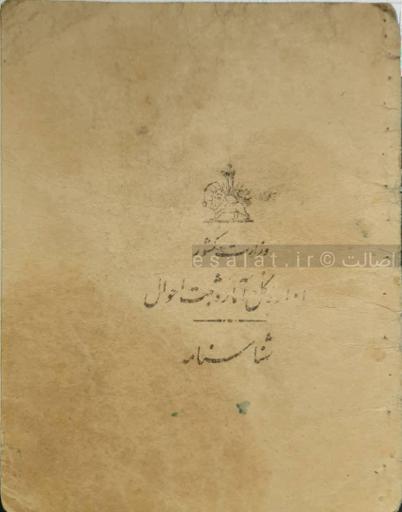 وزارت کشور
اداره کل آمار و ثبت احوال
شناسنامه
esalat.ir © اصالت